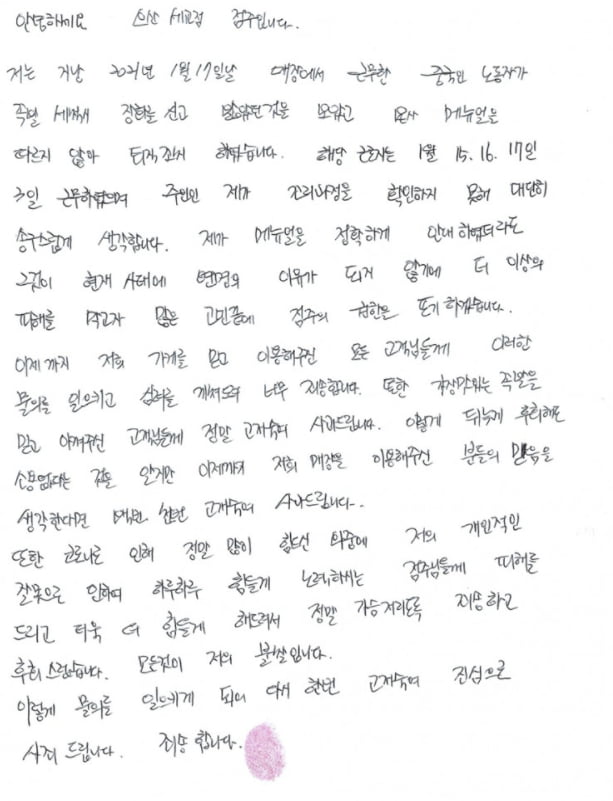 안녕하세요 오산 세교점 점주입니다.
저는 지난 2021년 1월17일날 매장에서 근무한 중국인 노동자가
족발 세척시 장화를 신고 발로 것을 보았고 본사 메뉴얼을
따르지 않아 퇴직조치 하였습니다. 해당 근로자는 1월 15.16.17일
3일 근무하였으며 주인인 제가 조리과정을 확인하지 못해 대단히
송구스럽게 생각합니다. 제가 메뉴얼을 정확하게 안내 하였더라도
그것이 현재 사태에 변명의 이유가 되지 않기에 더 이상의
피해를 막고자 많은 고민끝에 점주의 권한을 포기 하겠습니다.
이제까지 저희 가게를 믿고 이용해주신 모든 고객님들께 이러한
물의를 일으키고 심려를 끼쳐드려 너무 죄송합니다. 또한 가장맛있는 족발을
믿고 아껴주신 고객님들께 정말 고개숙여 사과드립니다. 이렇게 뒤늦게 후회해도
소용없다는 것을 알지만 이제까지 저희 매장을 이용해주신 분들의 믿음을
생각한다면 백번 천번 고개숙여 사과드립니다.
또한 코로나로 인해 정말 많이 힘드신 와중에 저의 개인적인
잘못으로 인하여 하루하루 힘들게 노력하시는 점주님들께 피해를
드리고 더욱 더 힘들게 해드려서 정말 가슴저리도록 죄송하고
후회스럽습니다. 모든것이 저의 불찰입니다.
이렇게 물의를 일으키게 되어 다시 한번 고개숙여 진심으로
사죄 드립니다. 죄송합니다.